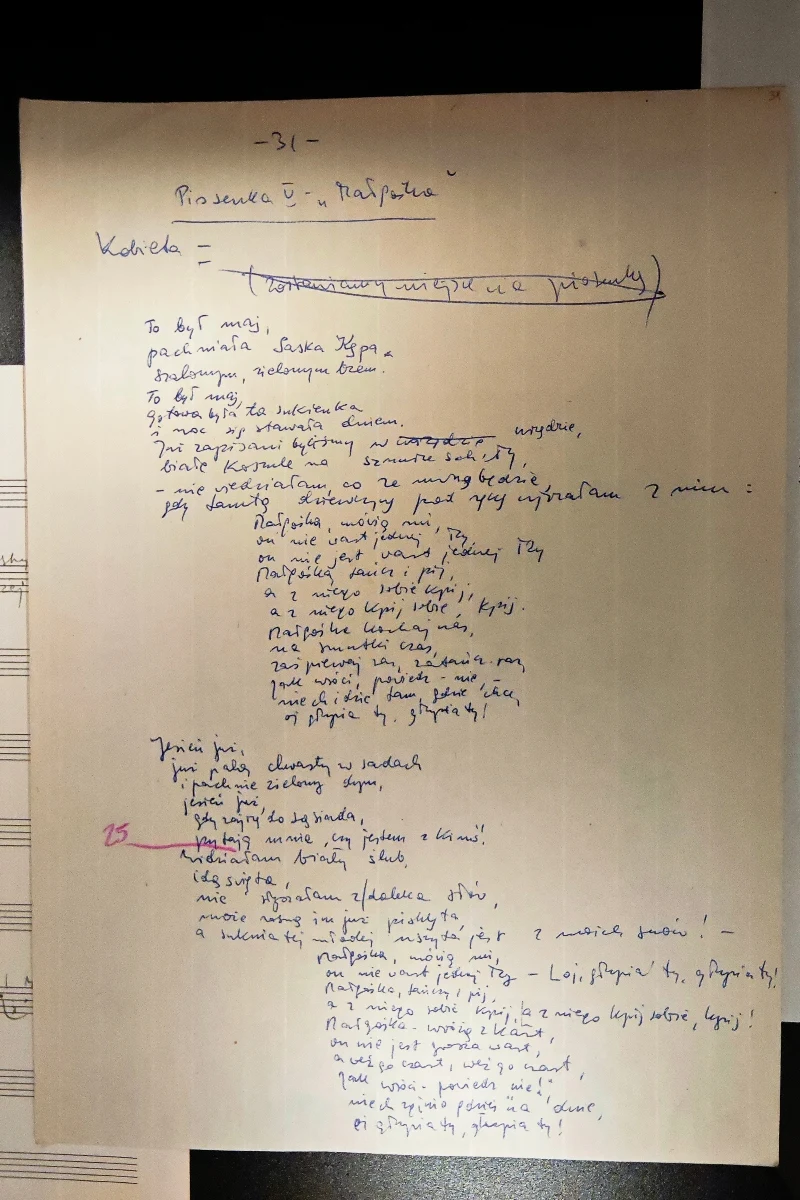 - 31 -
Piosenka V - „Małgośka”
Kobieta =
(zostawiamy miejsce na piosenkę)
To był maj,
pachniała Saska Kępa
szalonym, zielonym bzem.
To był maj,
gotowa była ta sukienka
i noc się stawała dniem.
Już zapisani byliśmy w urzędzie urzędzie,
białe koszule na sznurze schły,
- nie wiedziałam, co ze mną będzie,
gdy tamtą dziewczynę pod rękę ujrzałam z nim :
Małgośka, mówią mi,
on nie wart jednej łzy
on nie jest wart jednej łzy
Małgośka, tańcz i pij,
a z niego sobie kpij,
a z niego kpij sobie, kpij.
Małgośka kochaj nas,
na smutki czas,
zaśpiewaj raz, zatańcz raz,
jak wróci, powiedz - nie, -
niech idzie tam, gdzie chce,
ej głupia ty, głupia ty!
Jesień już,
już palą chwasty w sadach
i pachnie zielony dym,
jesień już,
gdy zajrzę do sąsiada,
25
pytają mnie, czy jestem z kimś!
Widziałam biały ślub,
idą święta,
nie słyszałam z daleka słów,
może rosną im już pisklęta,
a suknia tej młodej uszyta jest z moich snów! -
Małgośka, mówią mi,
on nie wart jednej łzy - Loj, głupia ty, głupia ty!
Małgośka, tańcz i pij,
a z niego sobie kpij, a z niego kpij sobie, kpij!
Małgośka - wróżą z kart,
on nie jest grosza wart,
a weź go czart, weź go czart,
Jak wróci - powiedz nie!
niech zginie gdzieś na dnie,
ej głupia ty, głupia ty!